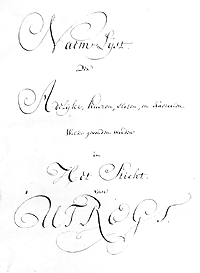 Naam-Lyst.
Der
Adelyke, Huizen, sloten, en Kasteelen
Welke gevonden worden
in
Het Sticht.
van
UTREGT.